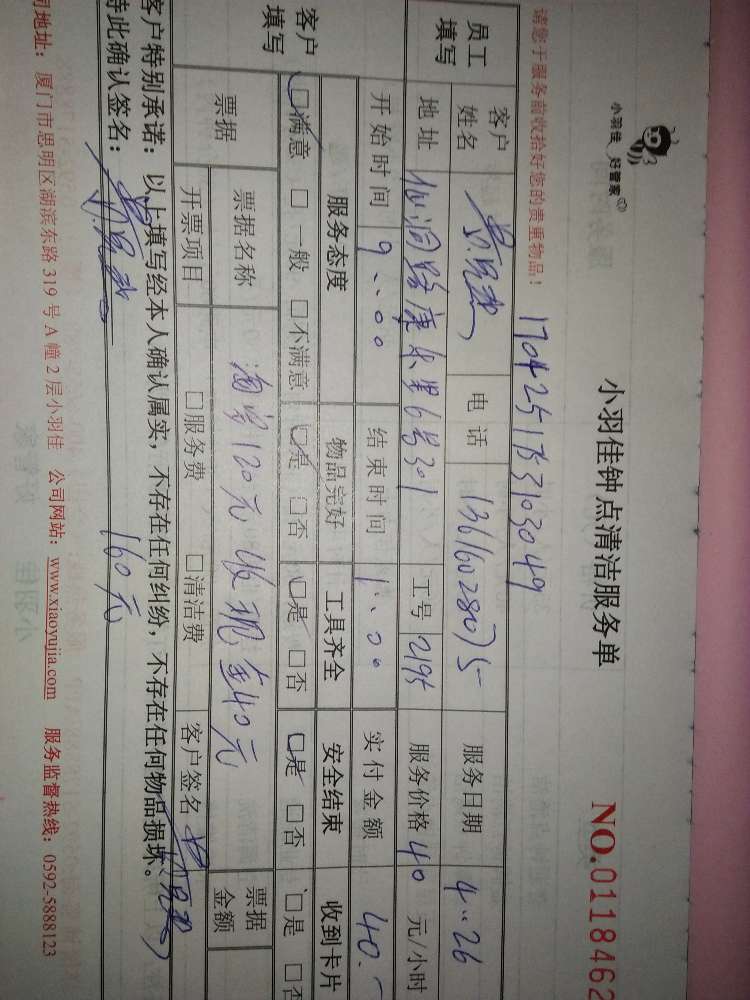 小羽佳 好管家
小羽佳钟点清洁服务单
NO.0118462
请您于服务前收拾好您的贵重物品!
员工填写
客户姓名 电话 13616028075 服务日期 4..26
地址 仙洞路康乐里6号301 工号 2195 服务价格 40 元/小时
开始时间 9..00 结束时间 1..00 实付金额 40.-
客户填写
服务态度 物品完好 工具齐全 安全结束 收到卡片
□满意 □一般 □不满意 □是 □否 □是 □否 □是 □否 □是 □否
票据 票据名称 淘宝120元收现金40元 票据金额
开票项目 □服务费 □清洁费 客户签名
客户特别承诺：以上填写经本人确认属实，不存在任何纠纷，不存在任何物品损坏。
特此确认签名： 160元
司地址：厦门市思明区湖滨东路 319 号 A 幢 2 层小羽佳 公司网站：www.xiaoyujia.com 服务监督热线：0592-5888123